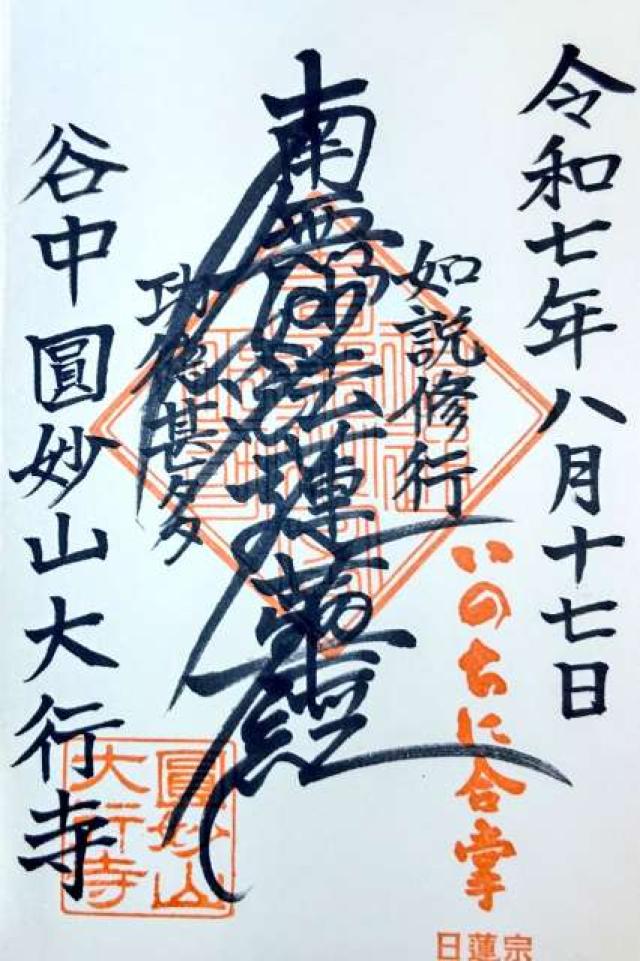 令和七年八月十七日
如説修行
いのちに合掌
南無妙法蓮華経
功徳甚多
谷中圓妙山大行寺
圓妙山
大行寺
日蓮宗